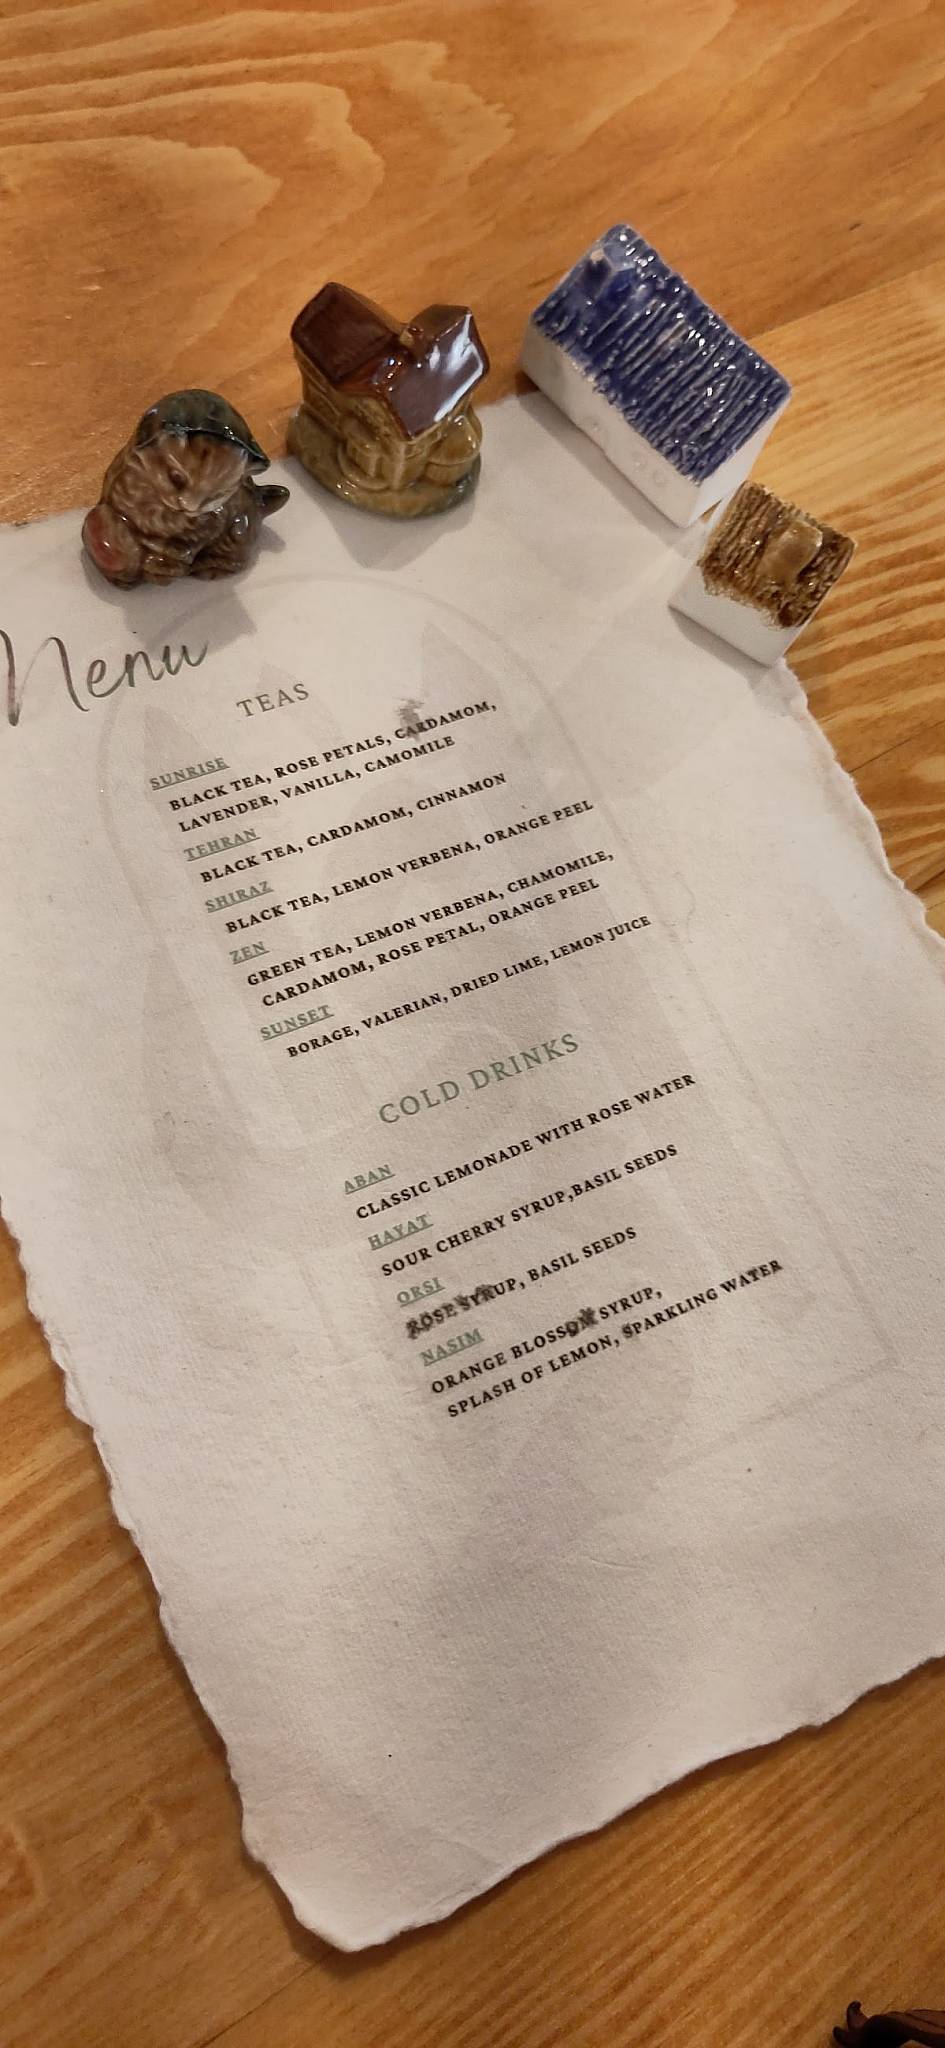 Menu
TEAS
SUNRISE
BLACK TEA, ROSE PETALS, CARDAMOM,
LAVENDER, VANILLA, CAMOMILE
TEHRAN
BLACK TEA, CARDAMOM, CINNAMON
SHIRAZ
BLACK TEA, LEMON VERBENA, ORANGE PEEL
ZEN
GREEN TEA, LEMON VERBENA, CHAMOMILE,
CARDAMOM, ROSE PETAL, ORANGE PEEL
SUNSET
BORAGE, VALERIAN, DRIED LIME, LEMON JUICE
COLD DRINKS
ABAN
CLASSIC LEMONADE WITH ROSE WATER
HAYAT
SOUR CHERRY SYRUP,BASIL SEEDS
ORSI
ROSE SYRUP, BASIL SEEDS
NASIM
ORANGE BLOSSOM SYRUP,
SPLASH OF LEMON, SPARKLING WATER